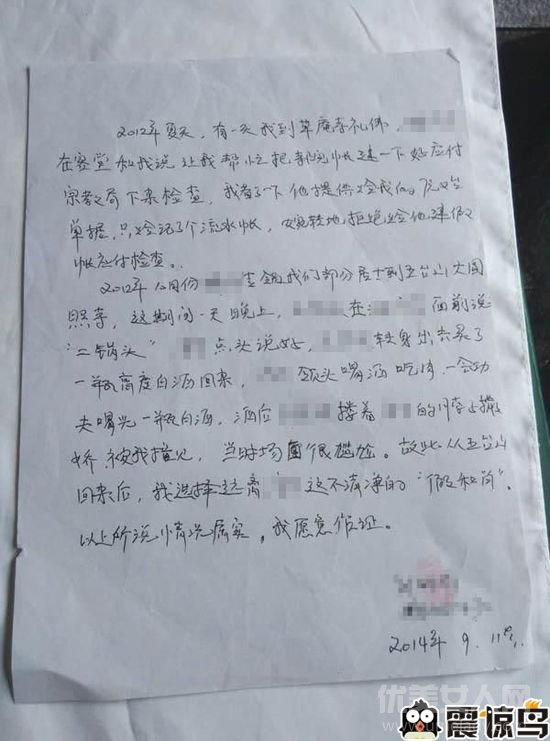 2012年夏天,有一天我到草庵寺礼佛,
在客堂和我说让我帮忙把郭的帐建一下好应付
宗教局下来检查,我看了下他提供给我的
单据,只给记了个流水帐,婉转地拒绝给他建假
帐应付检查。
2012年 月份 我们部分居士到五台山大圆
照寺,这期间一天晚上, 在 面前说
“二锅头” 点头说好, 转身出去买了
一瓶高度白酒回来, 领头喝酒吃肉,一会功
夫喝光一瓶白酒,酒后 搂着 的脖子撒
娇被我撞见,当时场面很尴尬。故此从五台山
回来后,我选择远离 这不清净的“假和尚”。
以上所说情况属实,我愿意作证。
2014年9.11号.
优美女人网
震惊鸟